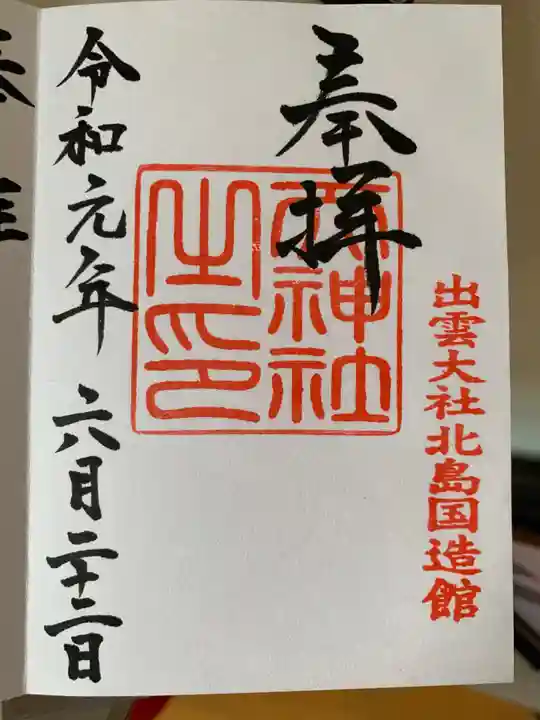 出雲大社北島国造館
奉拝
神社
之印
令和元年 六月二十二日